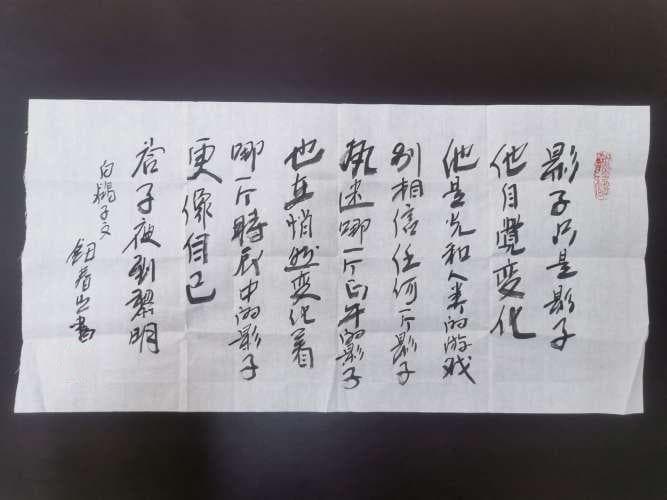 影子只是影子
他自觉变化
他是光和人类的游戏
别相信任何一个影子
执迷哪一个正午的影子
也在悄然变化着
哪一个時辰中的影子
更像自己
若子夜到黎明
白楊子文
春山書